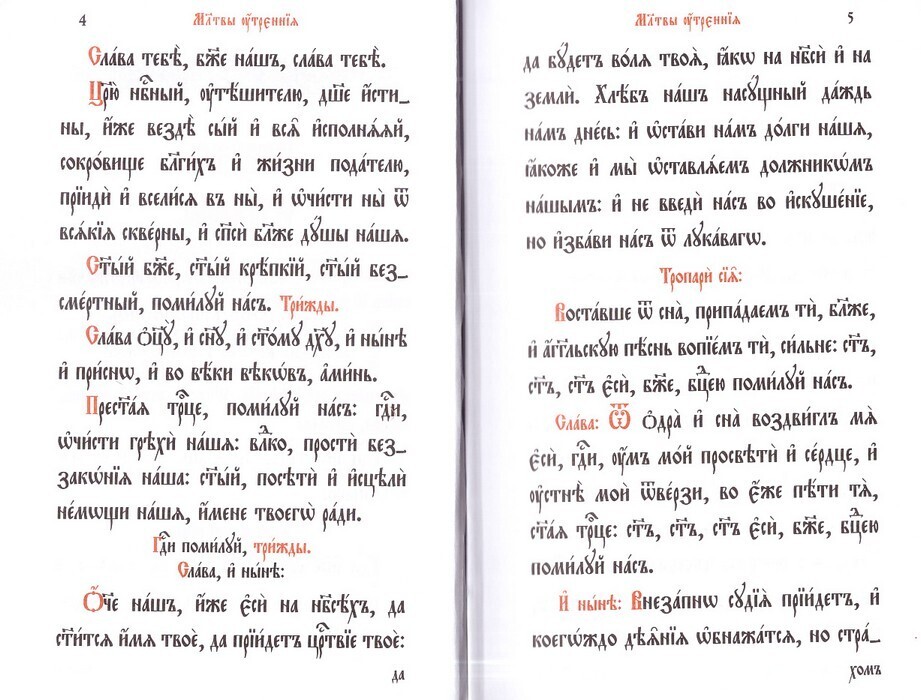 4
Мл҃твы ᲂу҆́трєннїѧ
Сла́ва тебѣ̀, бж҃е на́шъ, сла́ва тебѣ̀.
Цр҃ю̀ нбⷭ҇ный, ᲂу҆тѣ́шителю, дш҃е и҆́сти_
ны, и҆́же вездѣ̀ сы́й и҆ всѧ̑ и҆сполнѧ́ѧй,
сокро́вище благи́хъ и҆ жи́зни пода́телю,
прїидѝ и҆ всели́сѧ въ ны̀, и҆ ѡ҆чи́сти ны̀ ѿ
всѧ́кїѧ скве́рны, и҆ сп҃сѝ бл҃же ду́шы на́шѧ.
Ст҃ы́й бж҃е, ст҃ы́й крѣ́пкїй, ст҃ы́й без_
сме́ртный, поми́лꙋй на́съ. Три́жды.
Сла́ва ѻ҆ц҃ꙋ̀, и҆ сн҃ꙋ, и҆ ст҃о́мꙋ дх҃ꙋ, и҆ ны́нѣ
и҆ при́снѡ, и҆ во вѣ́ки вѣкѡ́въ, а҆ми́нь.
Прест҃а́ѧ трⷪ҇це, поми́лꙋй на́съ: гдⷭ҇и,
ѡ҆чи́сти грѣхѝ на́шѧ: влⷣко, простѝ без_
закѡ́нїѧ на̑ша: ст҃ы́й, посѣтѝ и҆ и҆сцѣлѝ
не́мѡщи на́шѧ, и҆́мене твоегѡ̀ ра́ди.
Гдⷭ҇и поми́лꙋй, три́жды.
Сла́ва, и҆ ны́нѣ:
Ѻ҆́ч҃е на́шъ, и҆́же є҆сѝ на нб҃сѣ́хъ, да
ст҃и́тсѧ и҆́мѧ твоѐ, да прїи́детъ црⷭ҇твїе твоѐ:
да
5
Мл҃твы ᲂу҆́трєннїѧ
да бꙋ́детъ во́лѧ твоѧ̀, ꙗ҆́кѡ на нб҃сѝ и҆ на
землѝ. Хлѣ́бъ на́шъ насꙋ́щный да́ждь
на́мъ дне́сь: и҆ ѡ҆ста́ви на́мъ до́лги на́шѧ,
ꙗ҆́коже и҆ мы̀ ѡ҆ставлѧ́емъ должникѡ́мъ
на́шымъ: и҆ не введѝ на́съ во и҆скꙋше́нїе,
но и҆зба́ви на́съ ѿ лꙋка́вагѡ.
Тропарѝ сїѧ̑:
Воста́вше ѿ сна̀, припа́даемъ тѝ, бл҃же,
и҆ а҆́гг҃льскꙋю пѣ́снь вопїе́мъ тѝ, си́льне: ст҃ъ,
ст҃ъ, ст҃ъ є҆сѝ, бж҃е, бцⷣею поми́лꙋй на́съ.
Сла́ва: Ѿ ѻ҆дра̀ и҆ сна̀ воздви́глъ мѧ̀
є҆сѝ, гдⷭ҇и, ᲂу҆́мъ мо́й просвѣтѝ и҆ се́рдце, и҆
ᲂу҆стнѣ̀ мои̑ ѿве́рзи, во є҆́же пѣ́ти тѧ̀,
ст҃а́ѧ трⷪ҇це: ст҃ъ, ст҃ъ, ст҃ъ є҆сѝ, бж҃е, бцⷣею
поми́лꙋй на́съ.
И҆ ны́нѣ: Внеза́пнѡ сꙋдїѧ̀ прїи́детъ, и҆
коегѡ́ждо дѣѧ̑нїѧ ѡ҆бнажа́тсѧ, но стра́_
хомъ